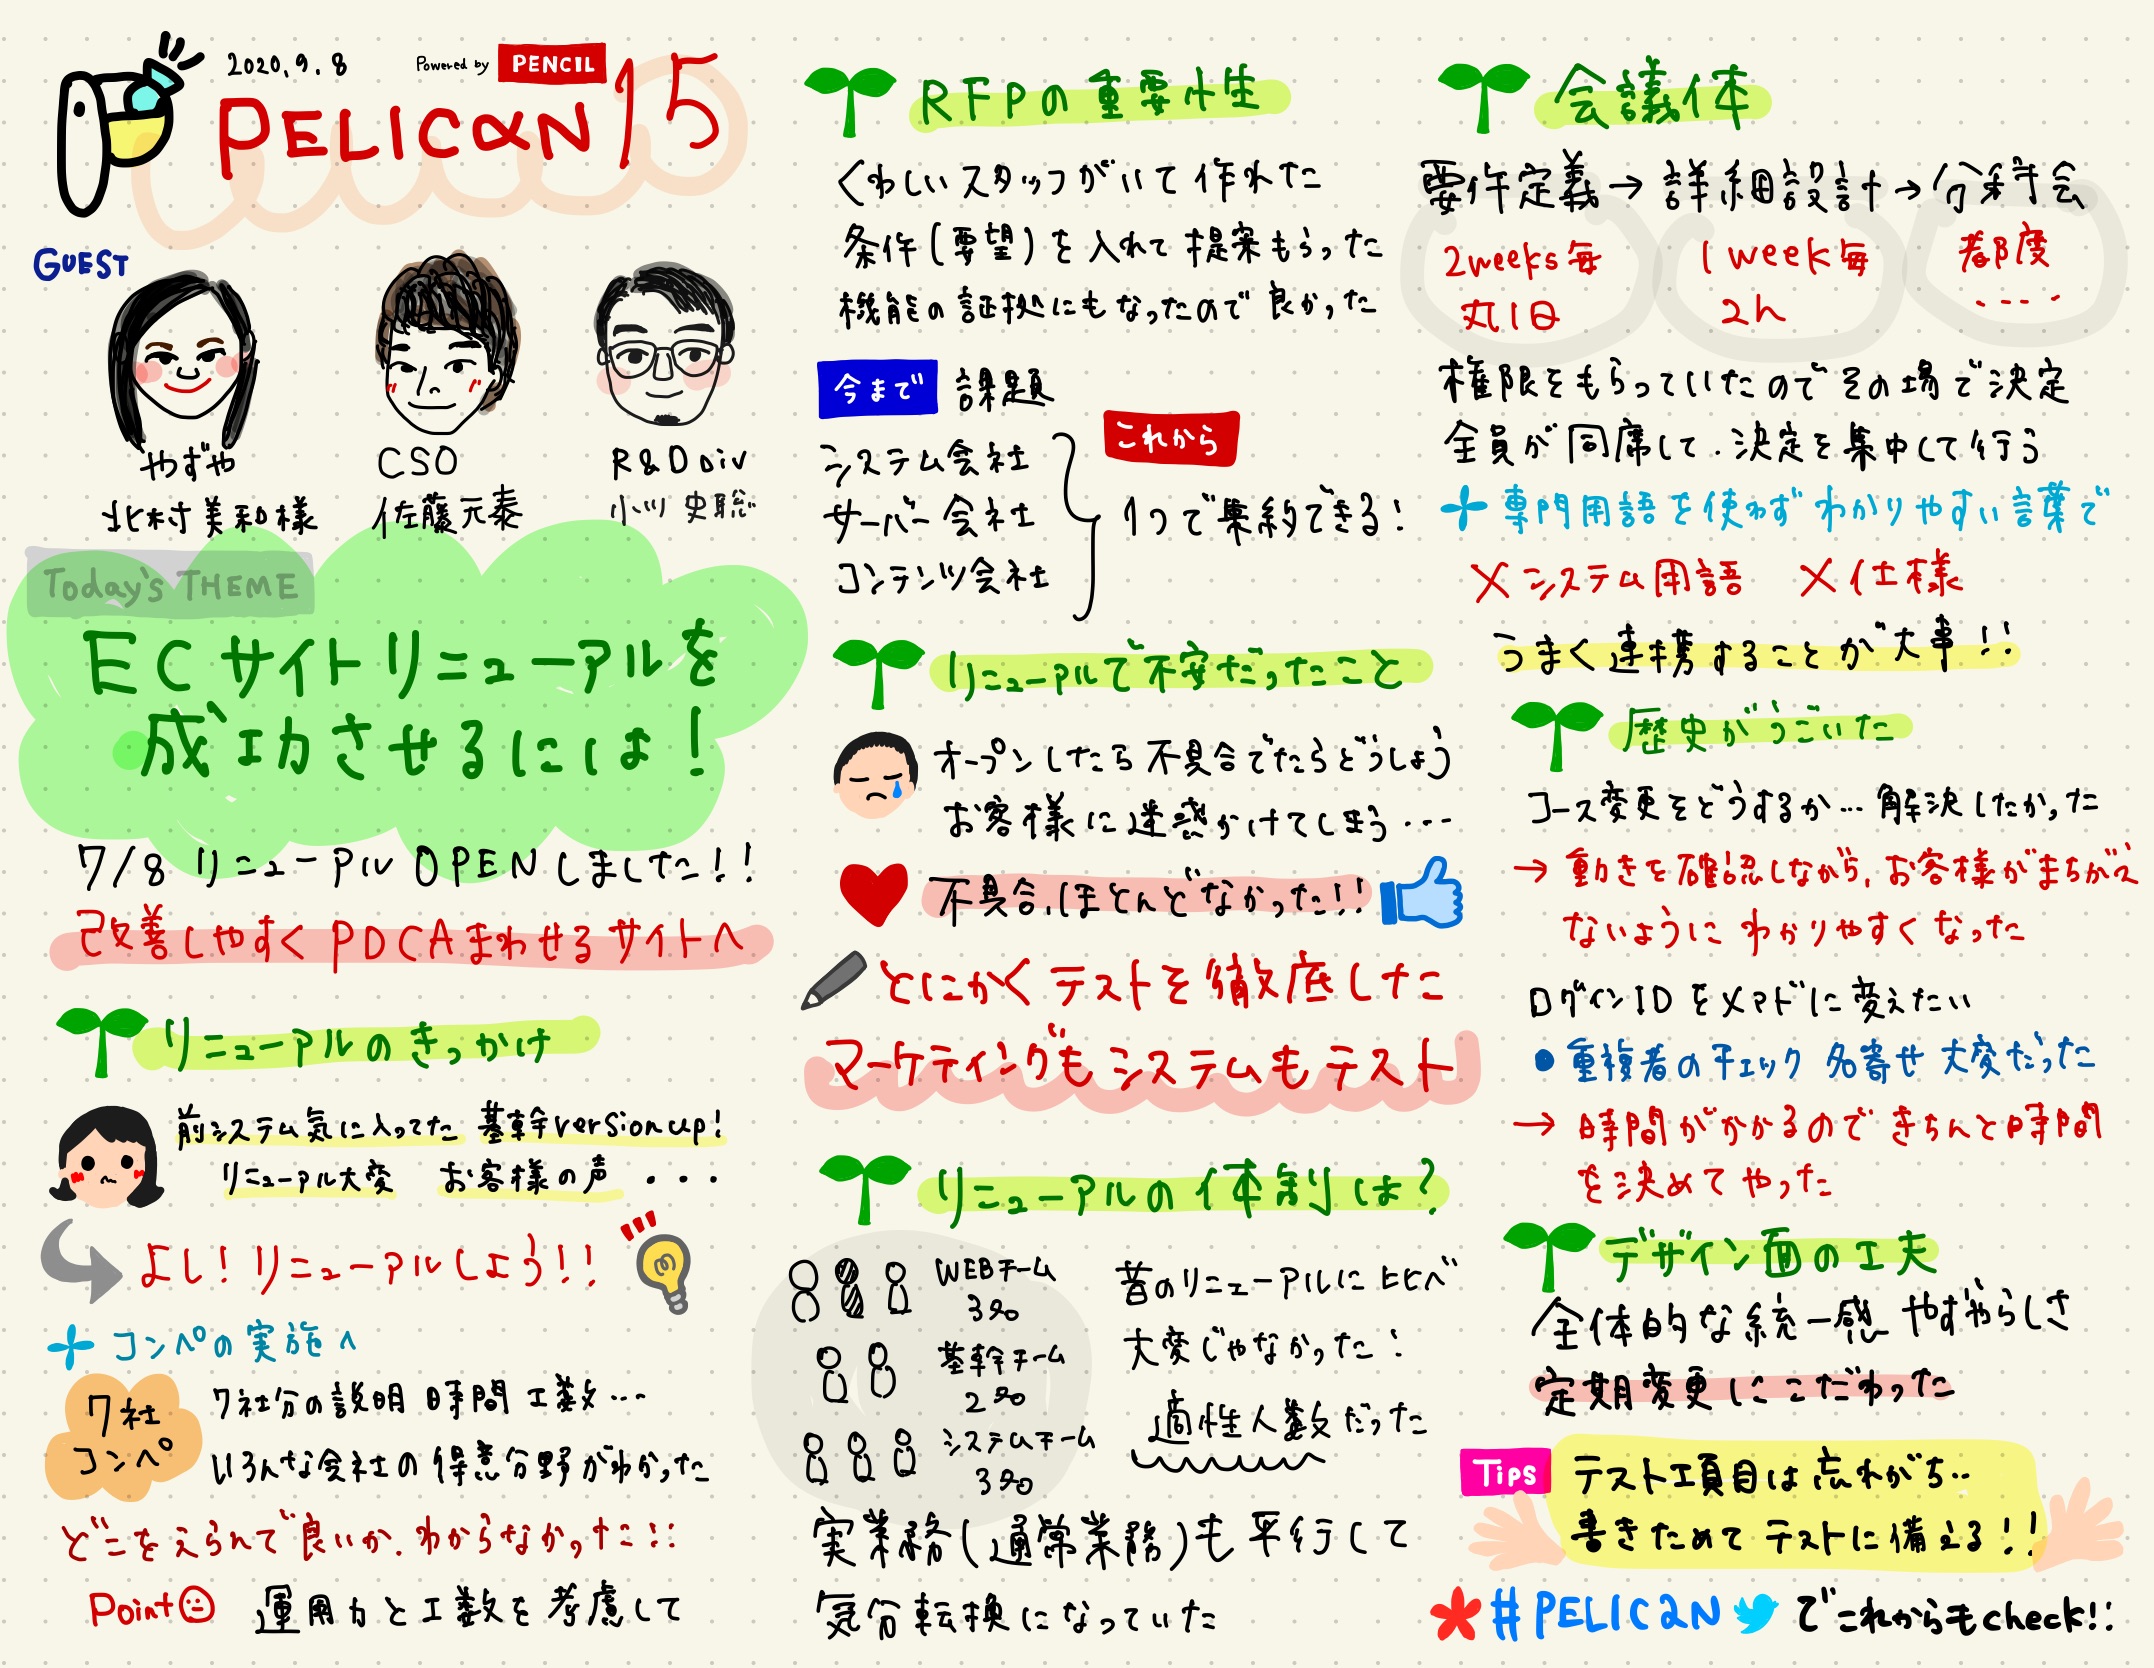 2020.9.8
Powered by PENCIL
PELICAN 15
GUEST
やずや
北村 美和様
CSO
佐藤元泰
R&D Div
小川 史聡
Today's THEME
ECサイトリニューアルを
成功させるには!
7/8 リニューアル OPENしました!!
改善しやすく PDCAまわせるサイトへ
リニューアルのきっかけ
前システム気に入ってた 基幹versionup!
リニューアル大変 お客様の声 ・・・
よし!リニューアルしよう!!
コンペの実施へ
7社
コンペ
7社分の説明 時間 工数…
いろんな会社の得意分野がわかった
どこをえらんで良いか、わからなかった!!
Point 運用力と工数を考慮して
RFPの重要性
くわしいスタッフがいて作れた
条件(要望)を入れて提案もらった
機能の証拠にもなったので良かった
今まで 課題
システム会社
サーバー会社
コンテンツ会社
これから
1つで集約できる!
リニューアルで不安だったこと
オープンしたら不具合でたらどうしよう
お客様に迷惑かけてしまう・・・
不具合、ほとんどなかった!!
とにかくテストを徹底した
マーケティングもシステムもテスト
リニューアルの体制は?
WEBチーム
3名
基幹チーム
2名
システムチーム
3名
昔のリニューアルに比べ
大変じゃなかった!
適性人数だった
実業務(通常業務)も平行して
気分転換になっていた
会議体
要件定義→詳細設計→分科会
2weeks毎
丸1日
1week毎
2h
都度
....
権限をもらっていたのでその場で決定
全員が同席して、決定を集中して行う
専門用語を使わずわかりやすい言葉で
×システム用語 ×仕様
うまく連携することが大事!!
歴史がうごいた
コース変更をどうするか…解決したかった
→動きを確認しながら、お客様がまちがえ
ないようにわかりやすくなった
ログインIDをメアドに変えたい
●重複者のチェック 名寄せ 大変だった
→時間がかかるのできちんと時間
を決めてやった
デザイン面の工夫
全体的な統一感 やずやらしさ
定期変更にこだわった
Tips
テスト項目は忘れがち…
書きためてテストに備える!!
#PELICAN でこれからもcheck!!